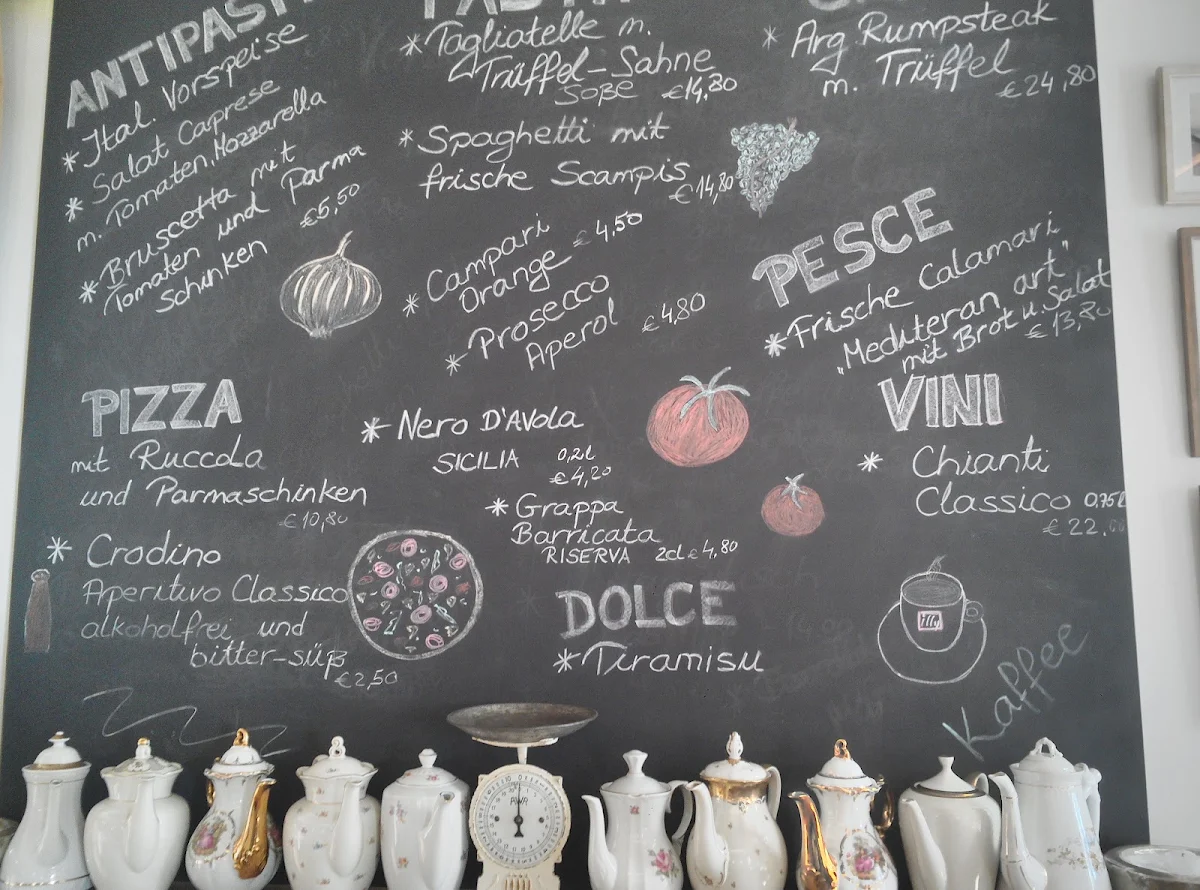 ANTIPASTI
* Ital. Vorspeise
* Salat Caprese
m. Tomaten, Mozzarella
* Bruscetta mit
Tomaten und Parma
Schinken €5,50
* Tagliatelle m.
Trüffel-Sahne
Soße €14,80
* Spaghetti mit
frische Scampis
€14,80
* Campari
Orange €4,50
* Prosecco
Aperol €4,80
* Arg. Rumpsteak
m. Trüffel
€24,80
PESCE
* Frische Calamari
„Mediteran art"
mit Brot u. Salat
€13,80
PIZZA
mit Ruccola
und Parmaschinken
€10,80
* Crodino
Aperitivo Classico
alkoholfrei und
bitter-süß
€2,50
* Nero D'AVOLA
SICILIA 0,2l
€4,20
* Grappa
Barricata
RISERVA 2cl €4,80
DOLCE
* Tiramisu
VINI
* Chianti
Classico 0,75l
€22,00
illy
Kaffee